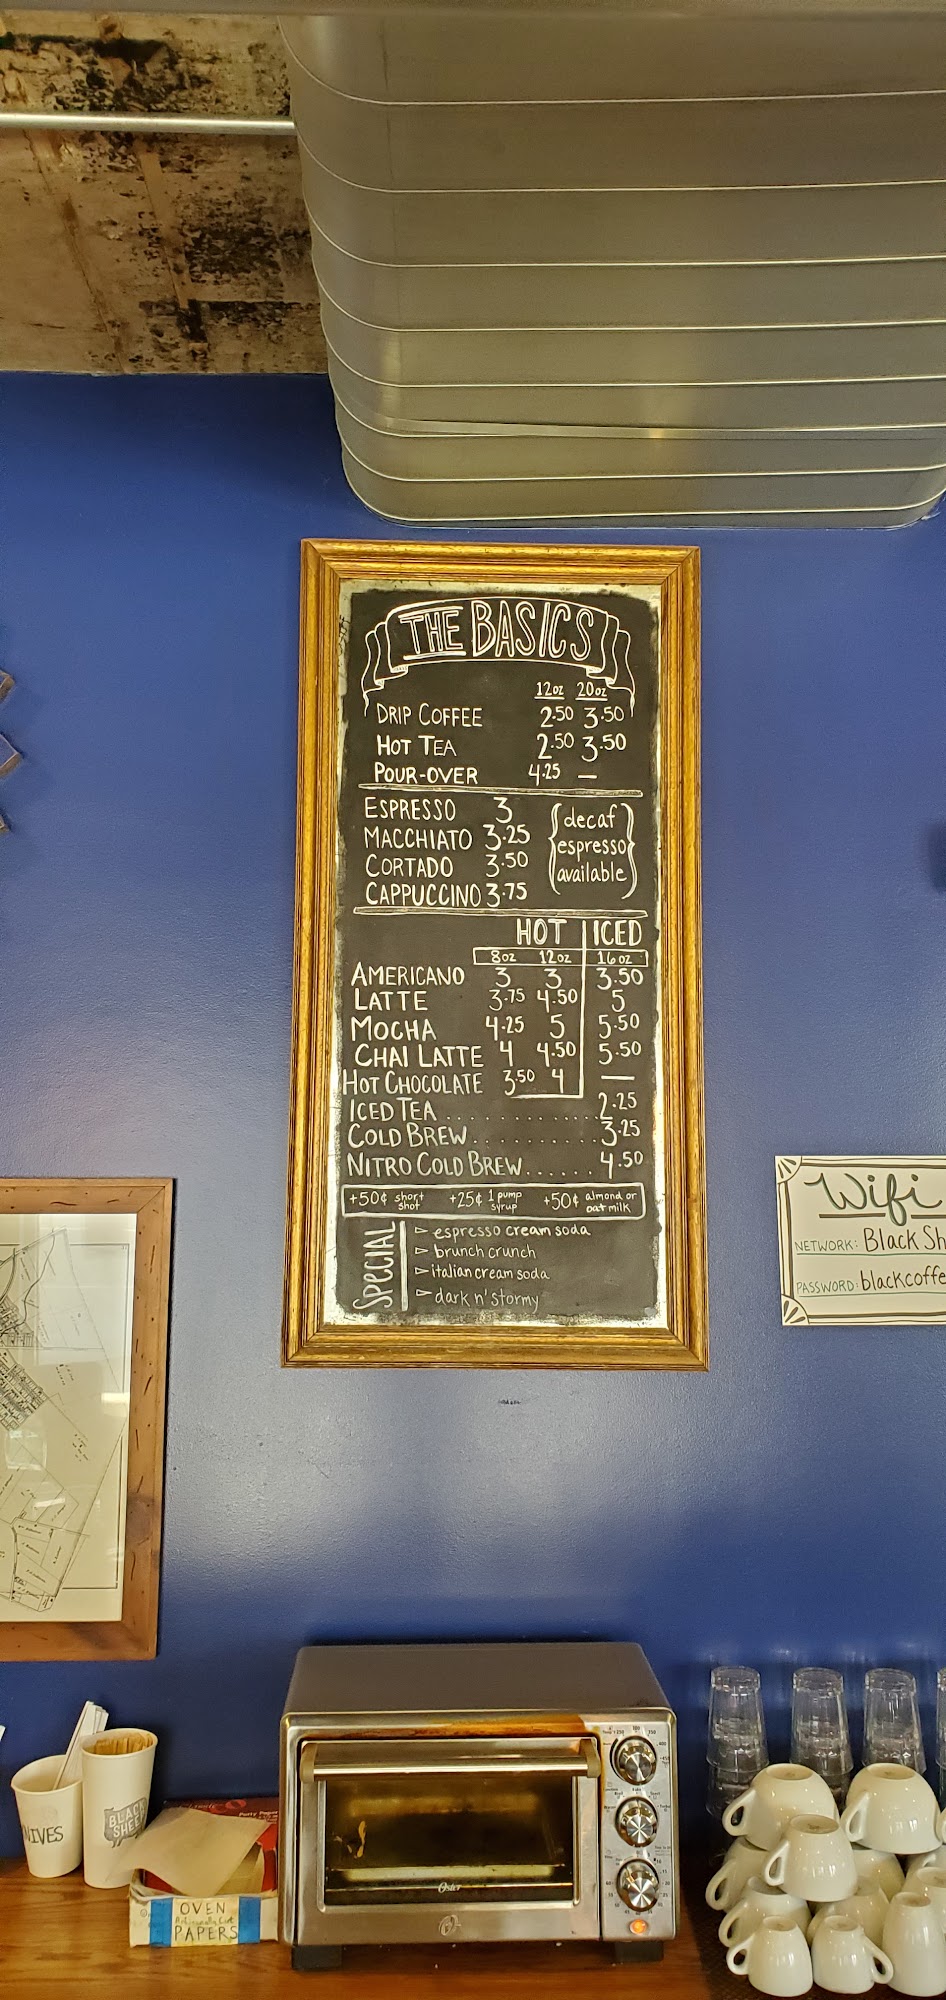 THE BASICS
12oz 20oz
DRIP COFFEE 2.50 3.50
HOT TEA 2.50 3.50
POUR-OVER 4.25 —
ESPRESSO 3
MACCHIATO 3.25
CORTADO 3.50
CAPPUCCINO 3.75
{decaf
espresso
available}
HOT ICED
8oz 12oz 16oz
AMERICANO 3 3 3.50
LATTE 3.75 4.50 5
MOCHA 4.25 5 5.50
CHAI LATTE 4 4.50 5.50
HOT CHOCOLATE 3.50 4 —
ICED TEA .................. 2.25
COLD BREW .............. 3.25
NITRO COLD BREW ...... 4.50
+50¢ short shot +25¢ 1 pump syrup +50¢ almond or oat milk
SPECIAL
▻ espresso cream soda
▻ brunch crunch
▻ italian cream soda
▻ dark n' stormy
Wifi
NETWORK: Black Sh
PASSWORD: blackcoffe
NIVES
BLACK
SHEEP
OVEN
PAPERS
Oster